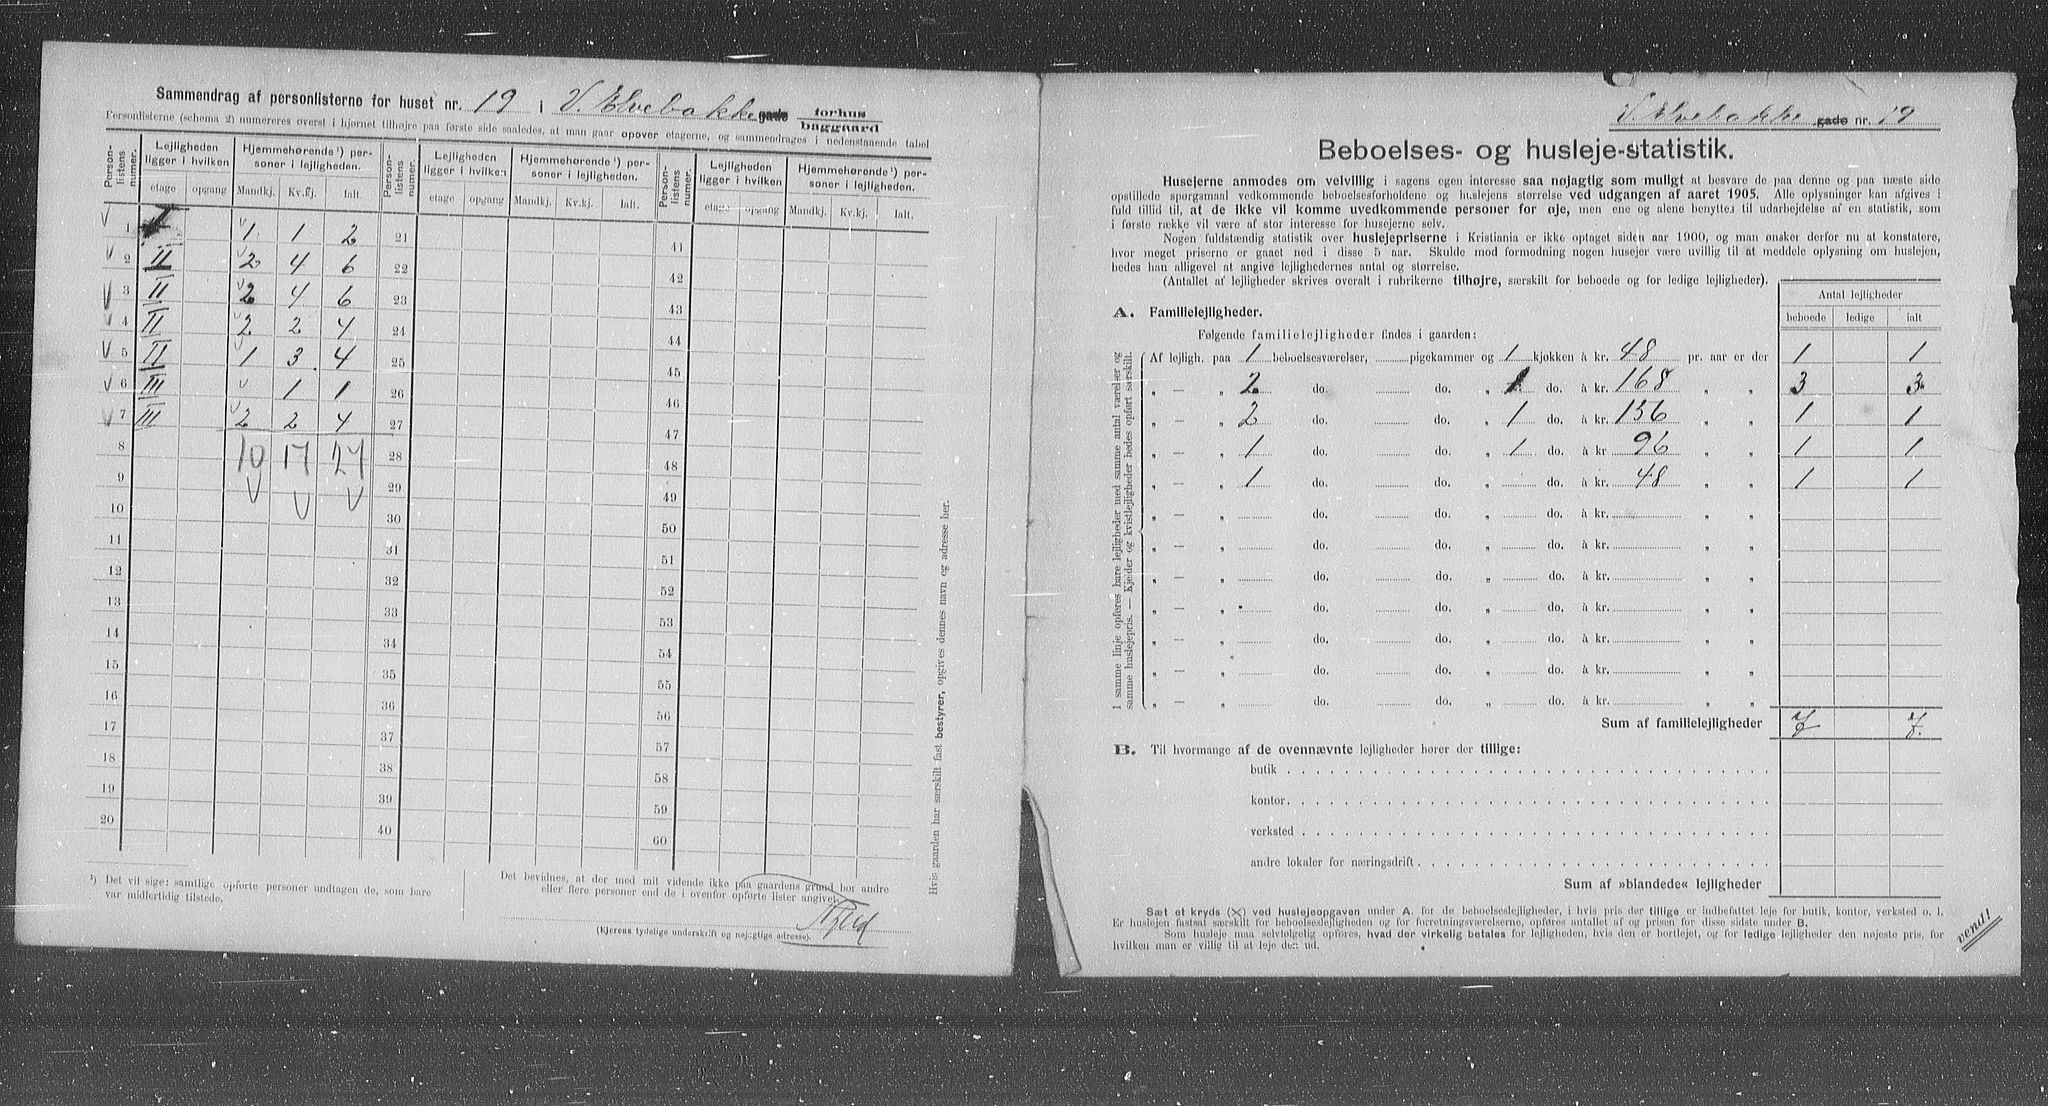 Sammendrag af personlisterne for huset nr. 19 i V. Elvebakke gade forhus baggaard
Personlisterne (schema 2) numereres øverst i hjørnet tilhøjre paa første side saaledes, at man gaar opover etagerne, og sammendrages i nedenstaaende tabel
Person-listens numer. Lejligheden ligger i hvilken Hjemmehørende¹) personer i lejligheden. Person-listens numer. Lejligheden ligger i hvilken Hjemmehørende¹) personer i lejligheden. Person-listens numer. Lejligheden ligger i hvilken Hjemmehørende¹) personer i lejligheden.
etage opgang Mandkj. Kv.kj. Ialt. etage opgang Mandkj. Kv.kj. Ialt. etage opgang Mandkj. Kv.kj. Ialt.
V 1 I V 1 1 2 21 41
V 2 II V 2 4 6 22 42
V 3 II V 2 4 6 23 43
V 4 II V 2 2 4 24 44
V 5 II V 1 3 4 25 45
V 6 III V 1 1 26 46
V 7 III V 2 2 4 27 47
8 10 17 27 28 48
9 V V V 29 49
10 30 50
11 31 51
12 32 52
13 33 53
14 34 54
15 35 55
16 36 56
17 37 57
18 38 58
19 39 59
20 40 60
Hvis gaarden har særskilt fast bestyrer, opgives dennes navn og adresse her.
¹) Det vil sige: samtlige opførte personer undtagen de, som bare
var midlertidig tilstede.
Det bevidnes, at der med mit vidende ikke paa gaardens grund bor andre
eller flere personer end de i ovenfor opførte lister angivet
(Ejerens tydelige underskrift og nøjagtige adresse).
V. Elvebakke gade nr. 19
Beboelses- og husleje-statistik.
Husejerne anmodes om velvillig i sagens egen interesse saa nøjagtig som muligt at besvare de paa denne og paa næste side
opstillede spørgsmaal vedkommende beboelsesforholdene og huslejens størrelse ved udgangen af aaret 1905. Alle oplysninger kan afgives i
fuld tillid til, at de ikke vil komme uvedkommende personer for øje, men ene og alene benyttes til udarbejdelse af en statistik, som
i første række vil være af stor interesse for husejerne selv.
Nogen fuldstændig statistik over huslejepriserne i Kristiania er ikke optaget siden aar 1900, og man ønsker derfor nu at konstatere,
hvor meget priserne er gaaet ned i disse 5 aar. Skulde mod formodning nogen husejer være uvillig til at meddele oplysning om huslejen,
bedes han alligevel at angive lejlighedernes antal og størrelse.
(Antallet af lejligheder skrives overalt i rubrikerne tilhøjre, særskilt for beboede og for ledige lejligheder).
Antal lejligheder
beboede ledige ialt
A. Familielejligheder.
Følgende familielejligheder findes i gaarden:
I samme linje opføres bare lejligheder med samme antal værelser og
samme huslejepris. — Kjelder og kvistlejligheder bedes opført særskilt.
Af lejligh. paa 1 beboelsesværelser, pigekammer og 1 kjøkken à kr. 48 pr. aar er der 1 1
„ — „ 2 do. do. „ 1 do. à kr. 168 „ „ 3 3
„ — „ 2 do. do. „ 1 do. à kr. 156 „ „ 1 1
„ — „ 1 do. do. „ 1 do. à kr. 96 „ „ 1 1
„ — „ 1 do. do. „ do. à kr. 48 „ „ 1 1
„ — „ do. do. „ do. à kr. „ „
„ — „ do. do. „ do. à kr. „ „
„ — „ do. do. „ do. à kr. „ „
„ — „ do. do. „ do. à kr. „ „
„ — „ do. do. „ do. à kr. „ „
„ — „ do. do. „ do. à kr. „ „
„ — „ do. do. „ do. à kr. „ „
Sum af familielejligheder 7 7.
B. Til hvormange af de ovennævnte lejligheder hører der tillige:
butik
kontor
verksted
andre lokaler for næringsdrift
Sum af »blandede« lejligheder
Sæt et kryds (X) ved huslejeopgaven under A. for de beboelseslejligheder, i hvis pris der tillige er indbefattet leje for butik, kontor, verksted o. l.
Er huslejen fastsat særskilt for beboelseslejligheden og for forretningsværelserne, opføres antallet af og prisen for disse sidste under B.
Som husleje maa selvfølgelig opføres, hvad der virkelig betales for lejligheden, hvis den er bortlejet, og for ledige lejligheder den nøjeste pris, for
hvilken man er villig til at leje den ud.
vend!